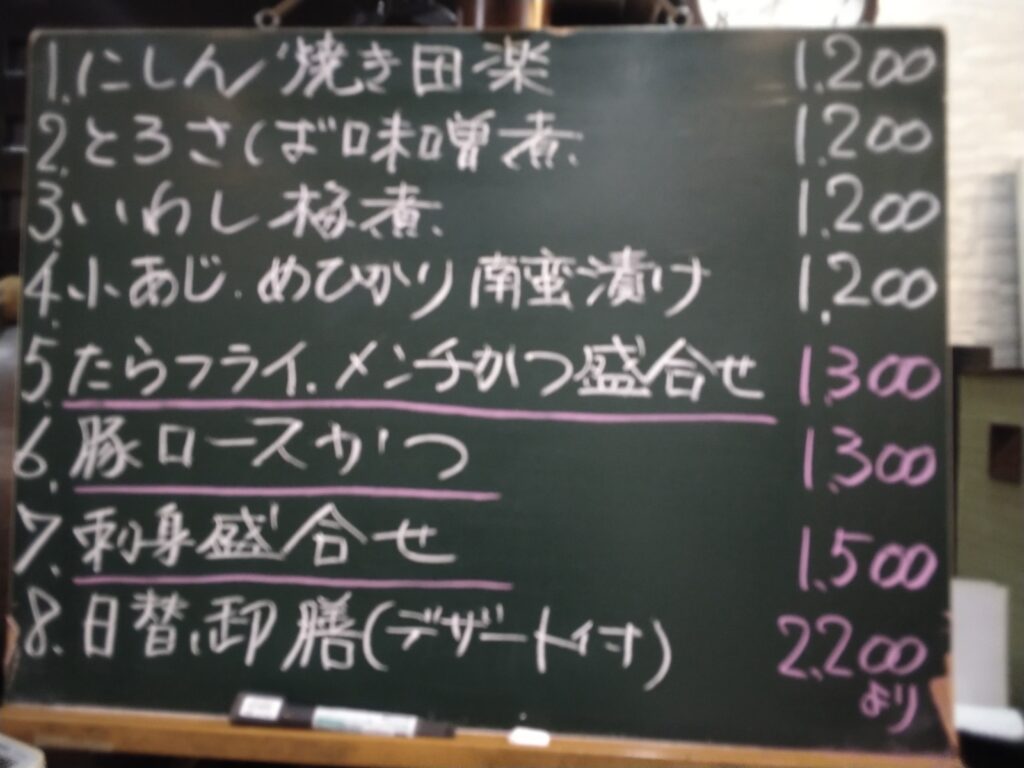 1. にしん焼き田楽 1.200
2. とろさば味噌煮 1.200
3. いわし梅煮 1.200
4. 小あじ.めひかり南蛮漬け 1.200
5. たらフライ.メンチかつ盛合せ 1.300
6. 豚ロースかつ 1.300
7. 刺身盛合せ 1.500
8. 日替り御膳(デザート付) 2.200
より